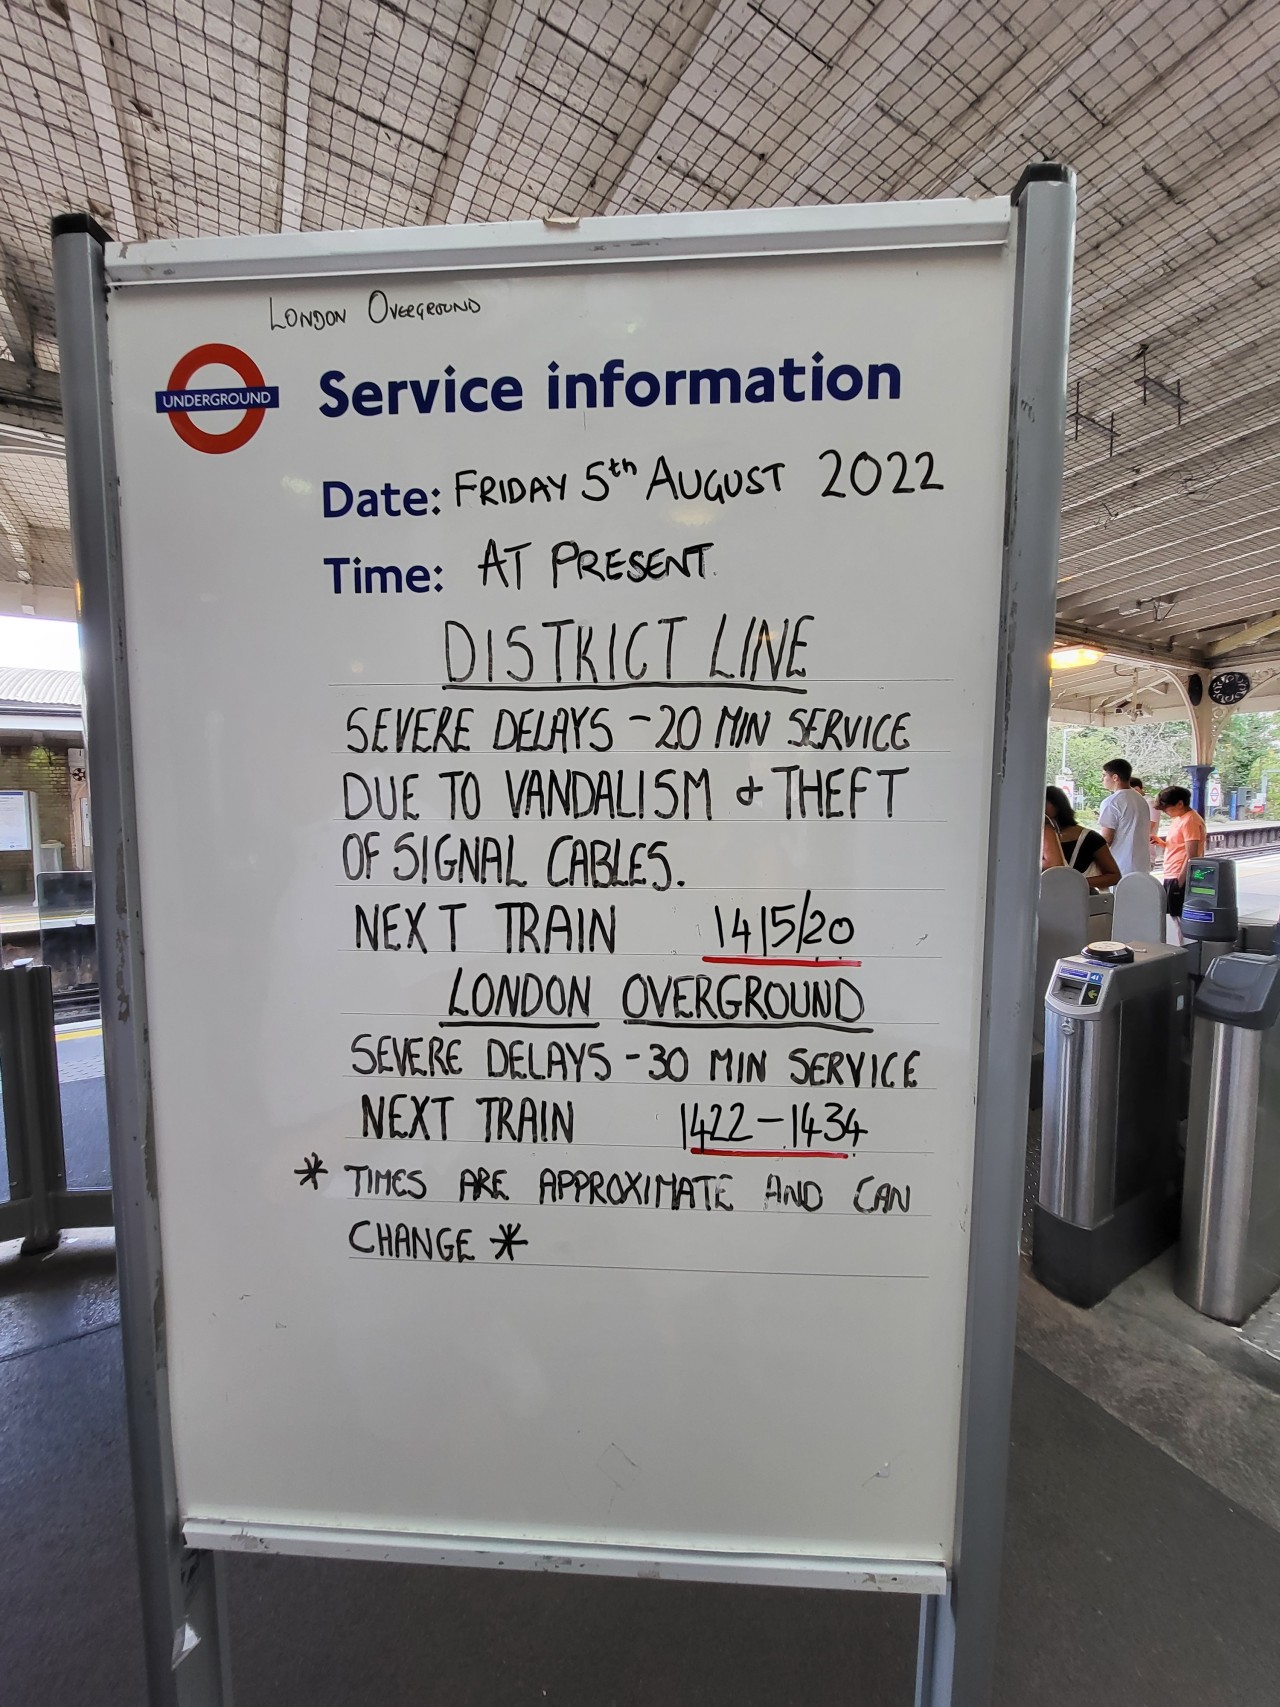 London Overground
UNDERGROUND
Service information
Date: FRIDAY 5th AUGUST 2022
Time: AT PRESENT.
DISTRICT LINE
SEVERE DELAYS - 20 MIN SERVICE
DUE TO VANDALISM & THEFT
OF SIGNAL CABLES.
NEXT TRAIN 1415/20
LONDON OVERGROUND
SEVERE DELAYS - 30 MIN SERVICE
NEXT TRAIN 1422 - 1434
* TIMES ARE APPROXIMATE AND CAN
CHANGE *